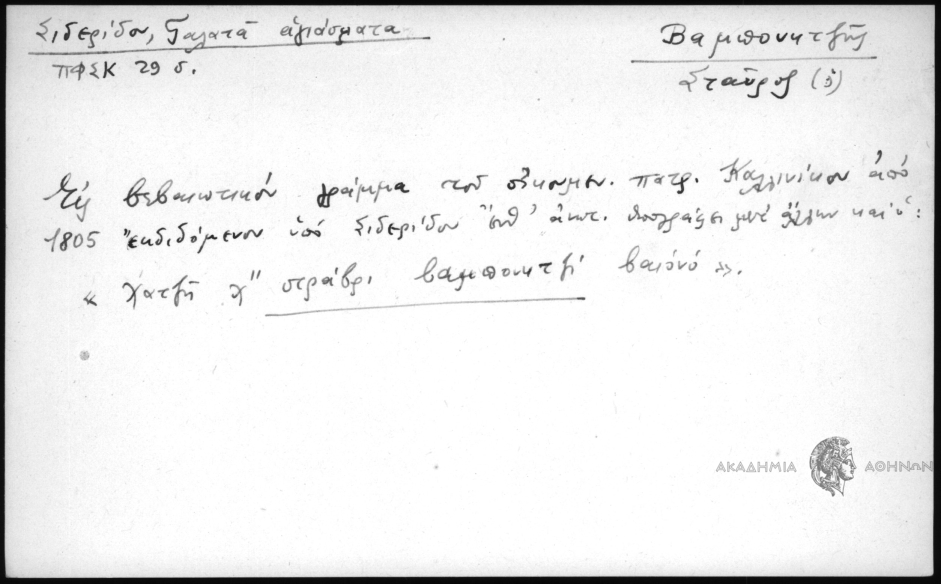 Σιδερίδου, Γαλατᾶ ἁγιάσματα
ΠΦΣΚ 29 σ.
Βαμπουκτζῆς
Σταῦρος (ὁ)
Εἰς βεβαιωτικόν γράμμα τοῦ οἰκουμεν. πατρ. Καλλινίκου ἀπό
1805 ἐκδιδόμενον ὑπό Σιδερίδου ὑπογράφει μετ' ἄλλων καί ὁ:
« χατζῆ χ" στράβρι βαμπουκτζί βαιόνο ».
ΑΚΑΔΗΜΙΑ ΑΘΗΝΩΝ